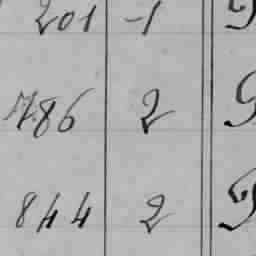 201 -1
786 2
844 2